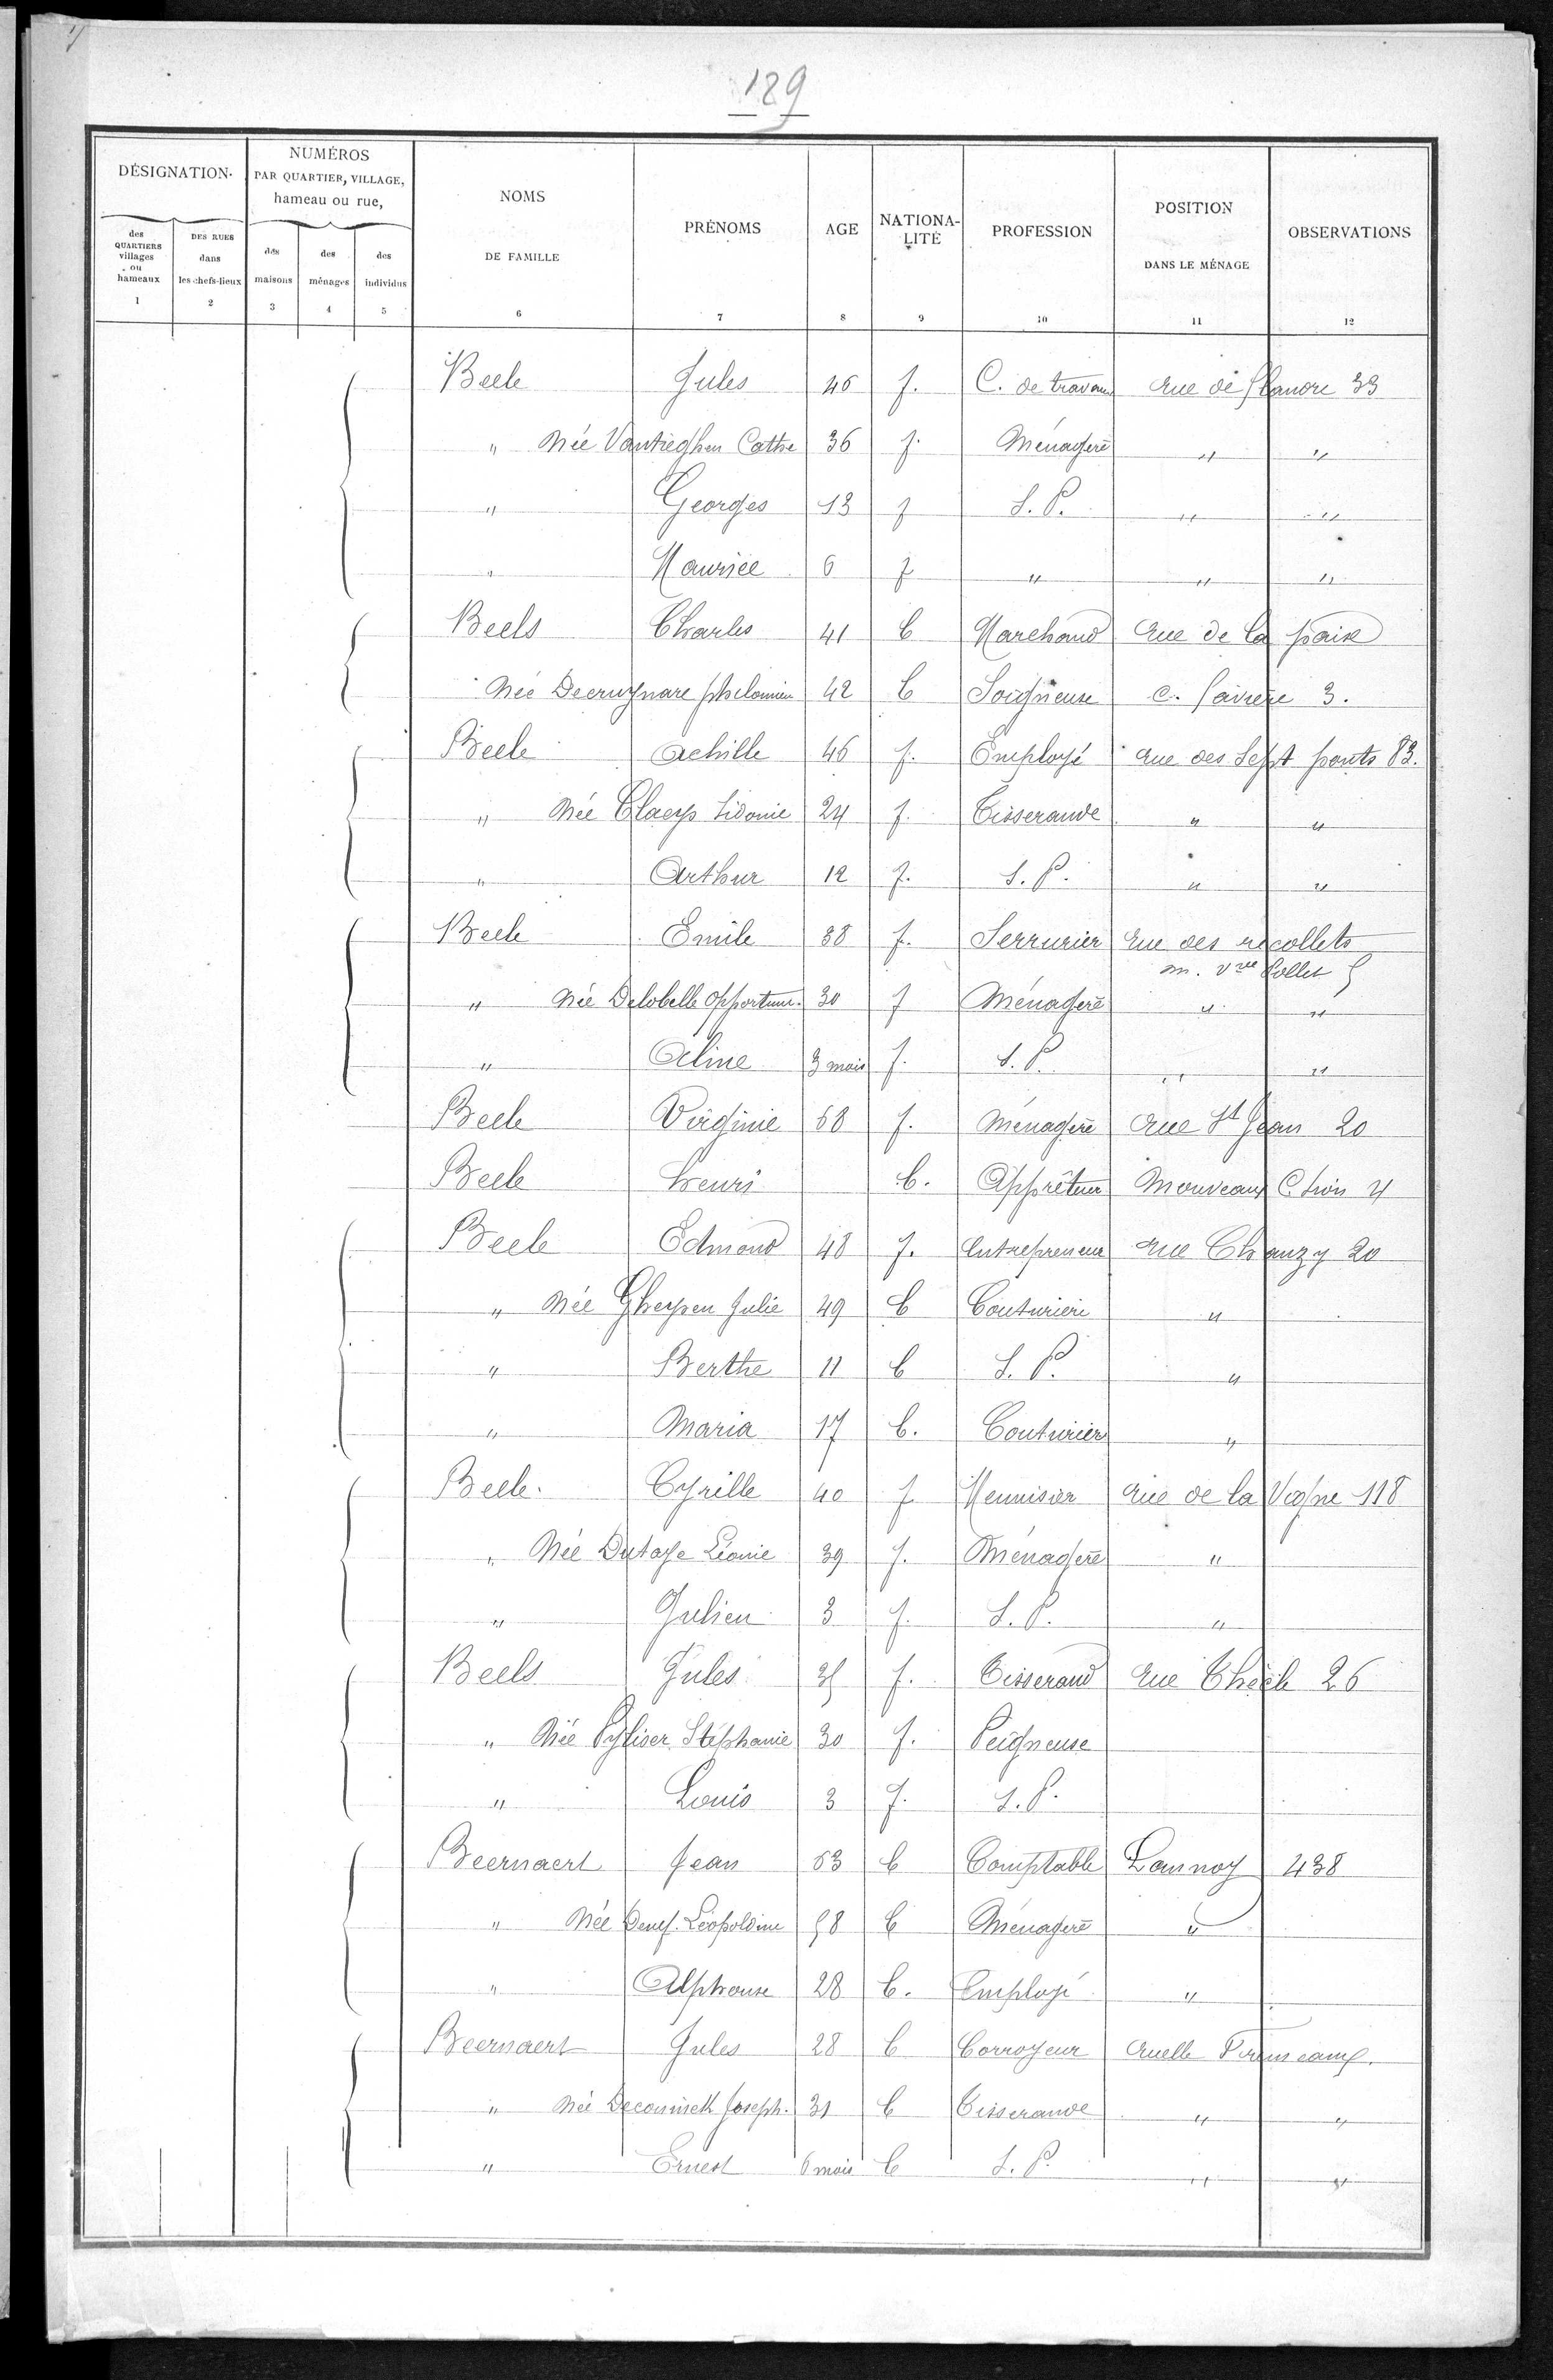 129
DÉSIGNATION
NUMÉROS
PAR QUARTIER, VILLAGE,
hameau ou rue,
NOMS
DE FAMILLE
PRÉNOMS
AGE
NATIONA-
LITÉ
PROFESSION
POSITION
DANS LE MÉNAGE
OBSERVATIONS
des
QUARTIERS
villages
ou
hameaux
DES RUES
dans
les chefs-lieux
des
maisons
des
ménages
des
individus
1 2 3 4 5 6 7 8 9 10 11 12
Beele Jules 46 f. C. de travaux rue de flandre 33
" Née Vantieghem Cathe 36 f. Ménagère " "
" Georges 13 f S. P. " "
" Maurice 6 f " " "
Beels Charles 41 b Marchand rue de la paix
Née philomène 42 b Soigneuse c. 3.
Beele Achille 46 f. Employé rue des Sept ponts 83.
" Née Claeys Sidonie 24 f. Tisserande " "
" Arthur 12 f. S. P. " "
Beele Emile 38 f. Serrurier rue des recollets
m. vve Collet 5
" Née Delobelle Opportune. 30 f Ménagère " "
" Aline 3 mois f. S. P. " "
Beele Virginie 68 f. Ménagère rue St Jean 20
Beele henri b. Apprêteur Mouveaux C. Lion 4
Beele Edmond 48 f. Entrepreneur rue Chanzy 20
" Née Gheysen Julie 49 b Couturière "
" Berthe 11 b S. P. "
" Maria 17 b. Couturière "
Beele. Cyrille 40 f Menuisier rue de la Vigne 118
" Née Dutaye Léonie 39 f. Ménagère "
" Julien 3 f. S. P. "
Beels Jules 35 f. Tisserand rue 26
" Née Pyliser Stéphanie 30 f. Peigneuse
" Louis 3 f. S. P.
Beernaert Jean 63 b Comptable Lannoy 438
" Née Denef. Léopoldine 58 b Ménagère "
" Alphonse 28 b. Employé "
Beernaert Jules 28 b Corroyeur ruelle
" Née Deconinck Joseph. 31 b Tisserande " "
" Ernest 6 mois b S. P. " "